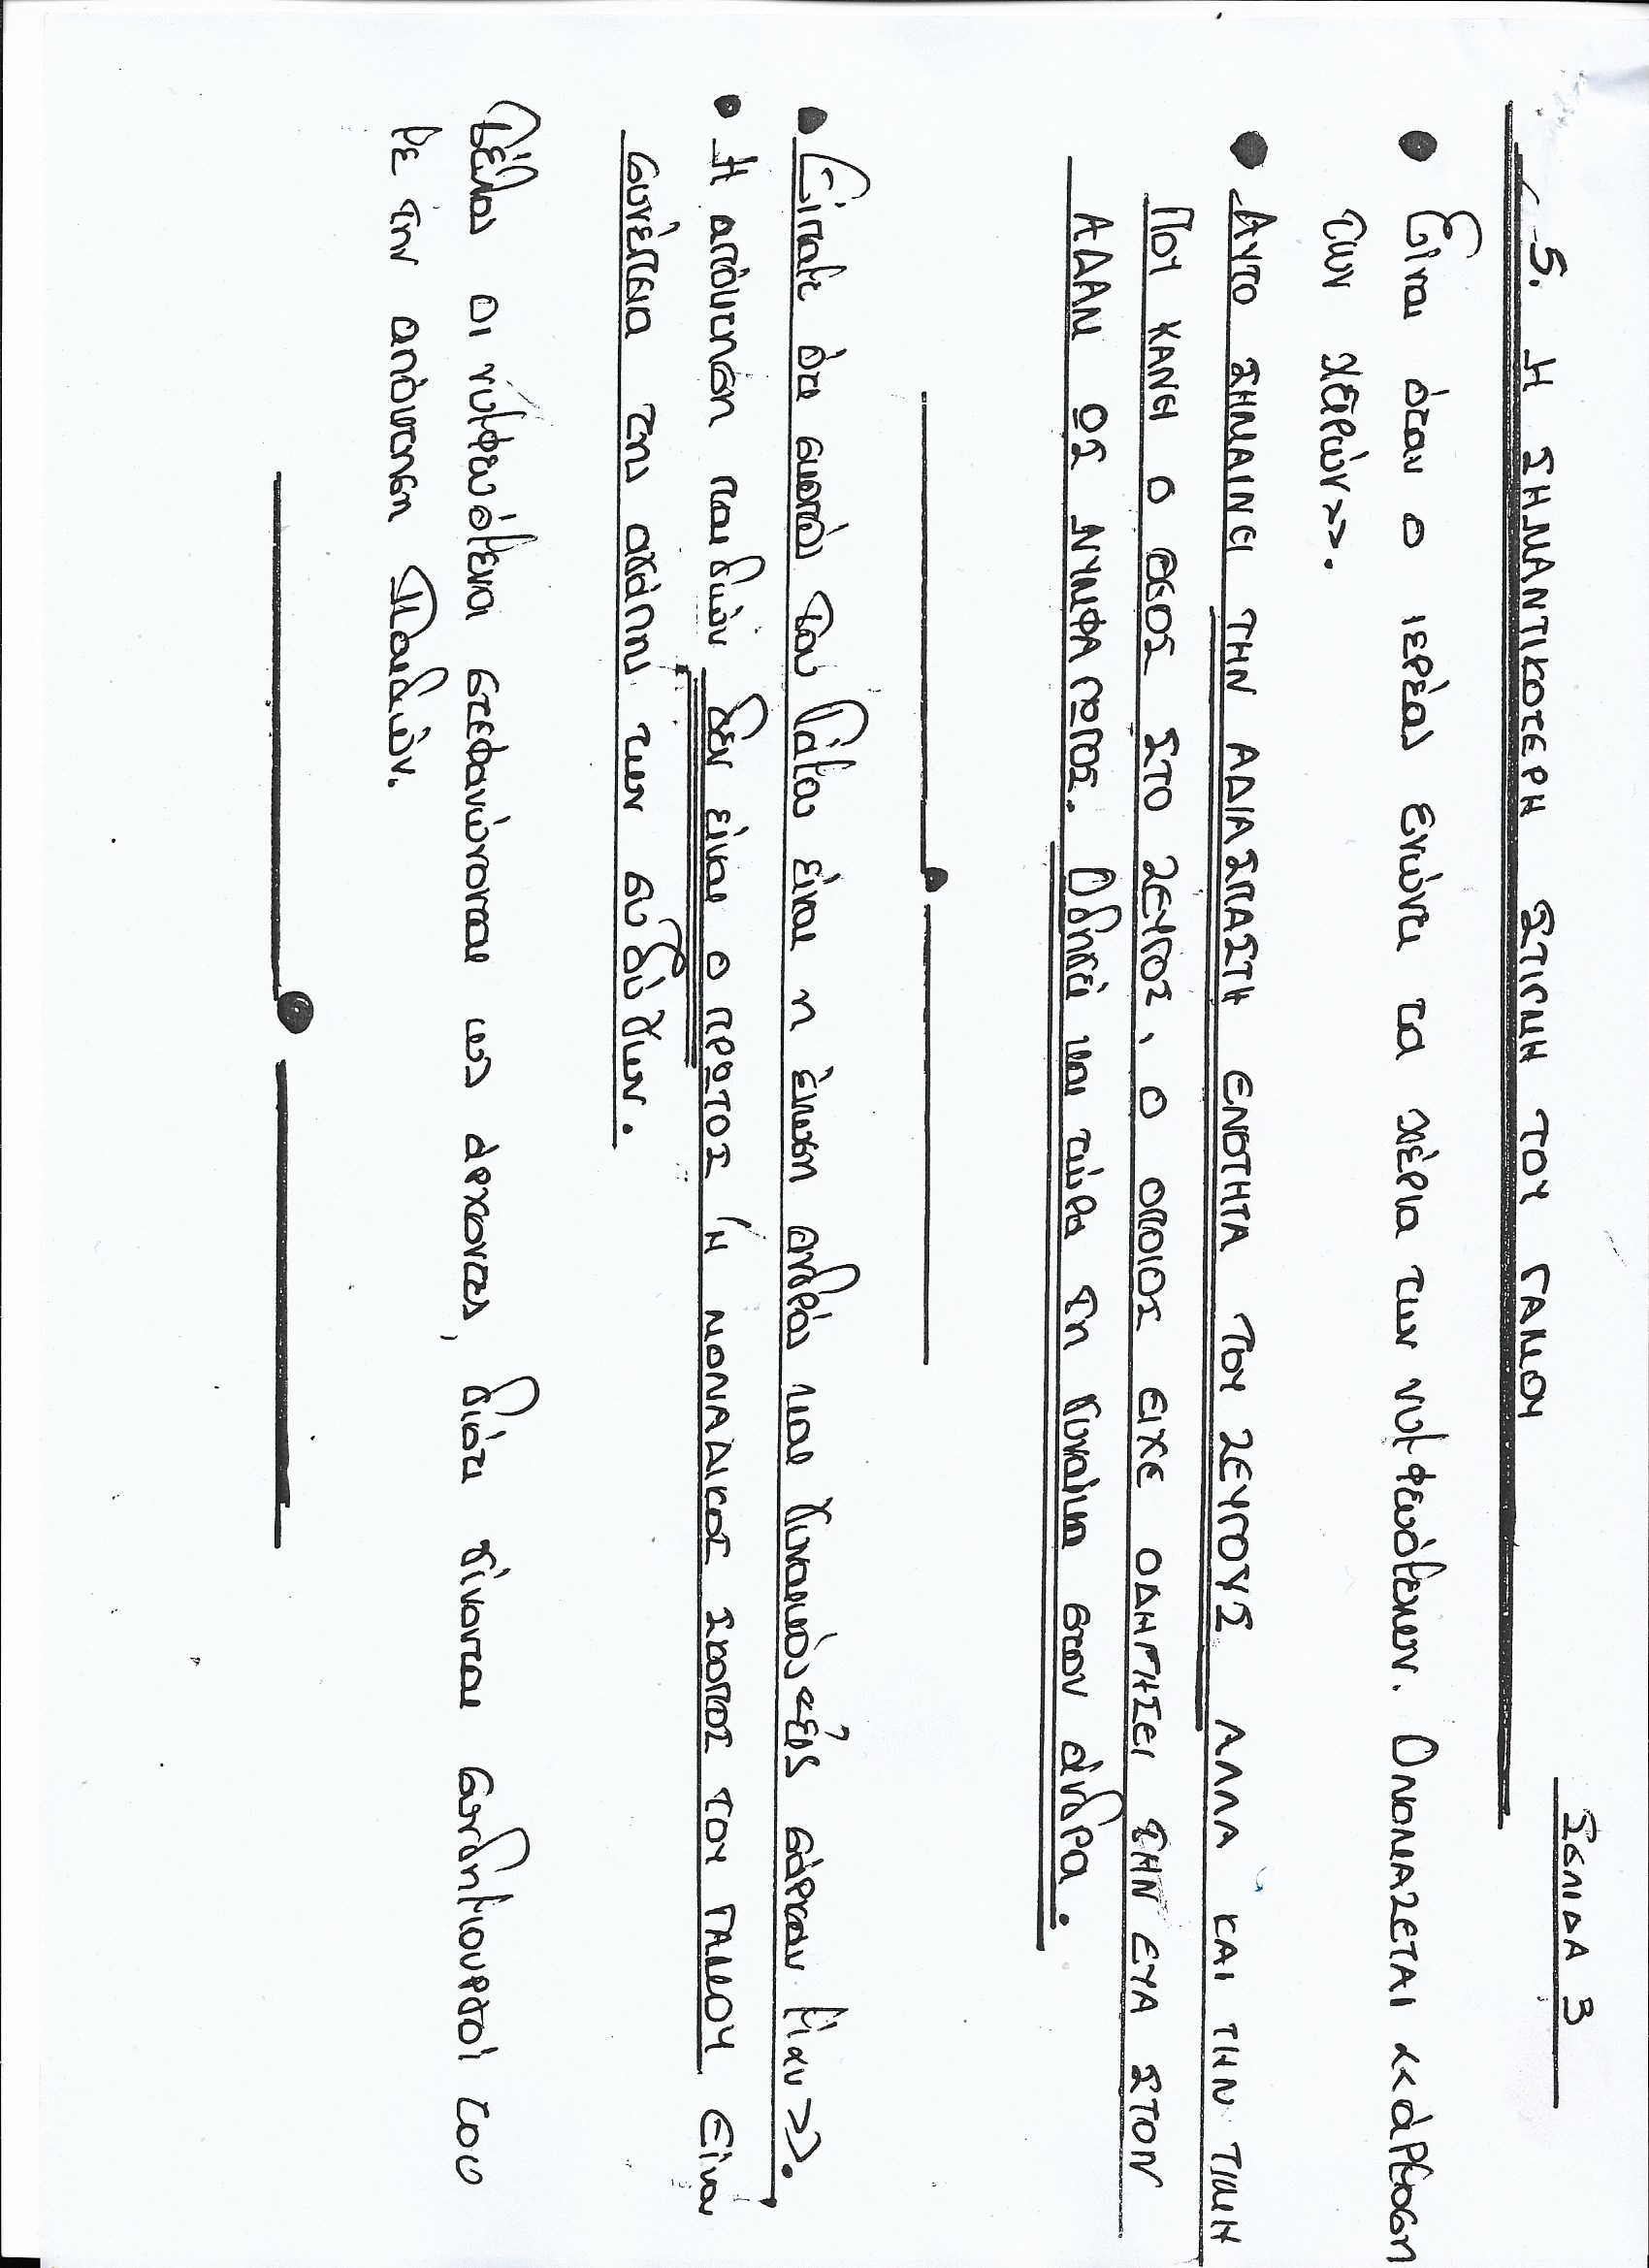 ΣΕΛΙΔΑ 3
5. Η ΣΗΜΑΝΤΙΚΟΤΕΡΗ ΣΤΙΓΜΗ ΤΟΥ ΓΑΜΟΥ
• Είναι όταν ο ιερέας ενώνει τα χέρια των νυμφευόμενων. ΟΝΟΜΑΖΕΤΑΙ <<άρμοση
των χειρών>>.
• ΑΥΤΟ ΣΗΜΑΙΝΕΙ ΤΗΝ ΑΔΙΑΣΠΑΣΤΗ ΕΝΟΤΗΤΑ ΤΟΥ ΖΕΥΓΟΥΣ ΑΛΛΑ ΚΑΙ ΤΗΝ ΤΙΜΗ
ΠΟΥ ΚΑΝΕΙ Ο ΘΕΟΣ ΣΤΟ ΖΕΥΓΟΣ, Ο ΟΠΟΙΟΣ ΕΙΧΕ ΟΔΗΓΗΣΕΙ ΤΗΝ ΕΥΑ ΣΤΟΝ
ΑΔΑΜ ΩΣ ΝΥΜΦΑΓΩΓΟΣ. Οδηγεί και τώρα τη γυναίκα στον άνδρα.
• Είπαμε ότι σκοπός του Γάμου είναι η ένωση ανδρός και γυναικός <<εις σάρκαν μίαν>>.
• Η απόκτηση παιδιών δεν είναι ο ΠΡΩΤΟΣ Ή ΜΟΝΑΔΙΚΟΣ ΣΚΟΠΟΣ ΤΟΥ ΓΑΜΟΥ Είναι
συνέπεια της αγάπης των συζύγων.
Τέλος οι νυμφευόμενοι στεφανώνονται ως άρχοντες, διότι γίνονται συνδημιουργοί του
με την απόκτηση Παιδιών.